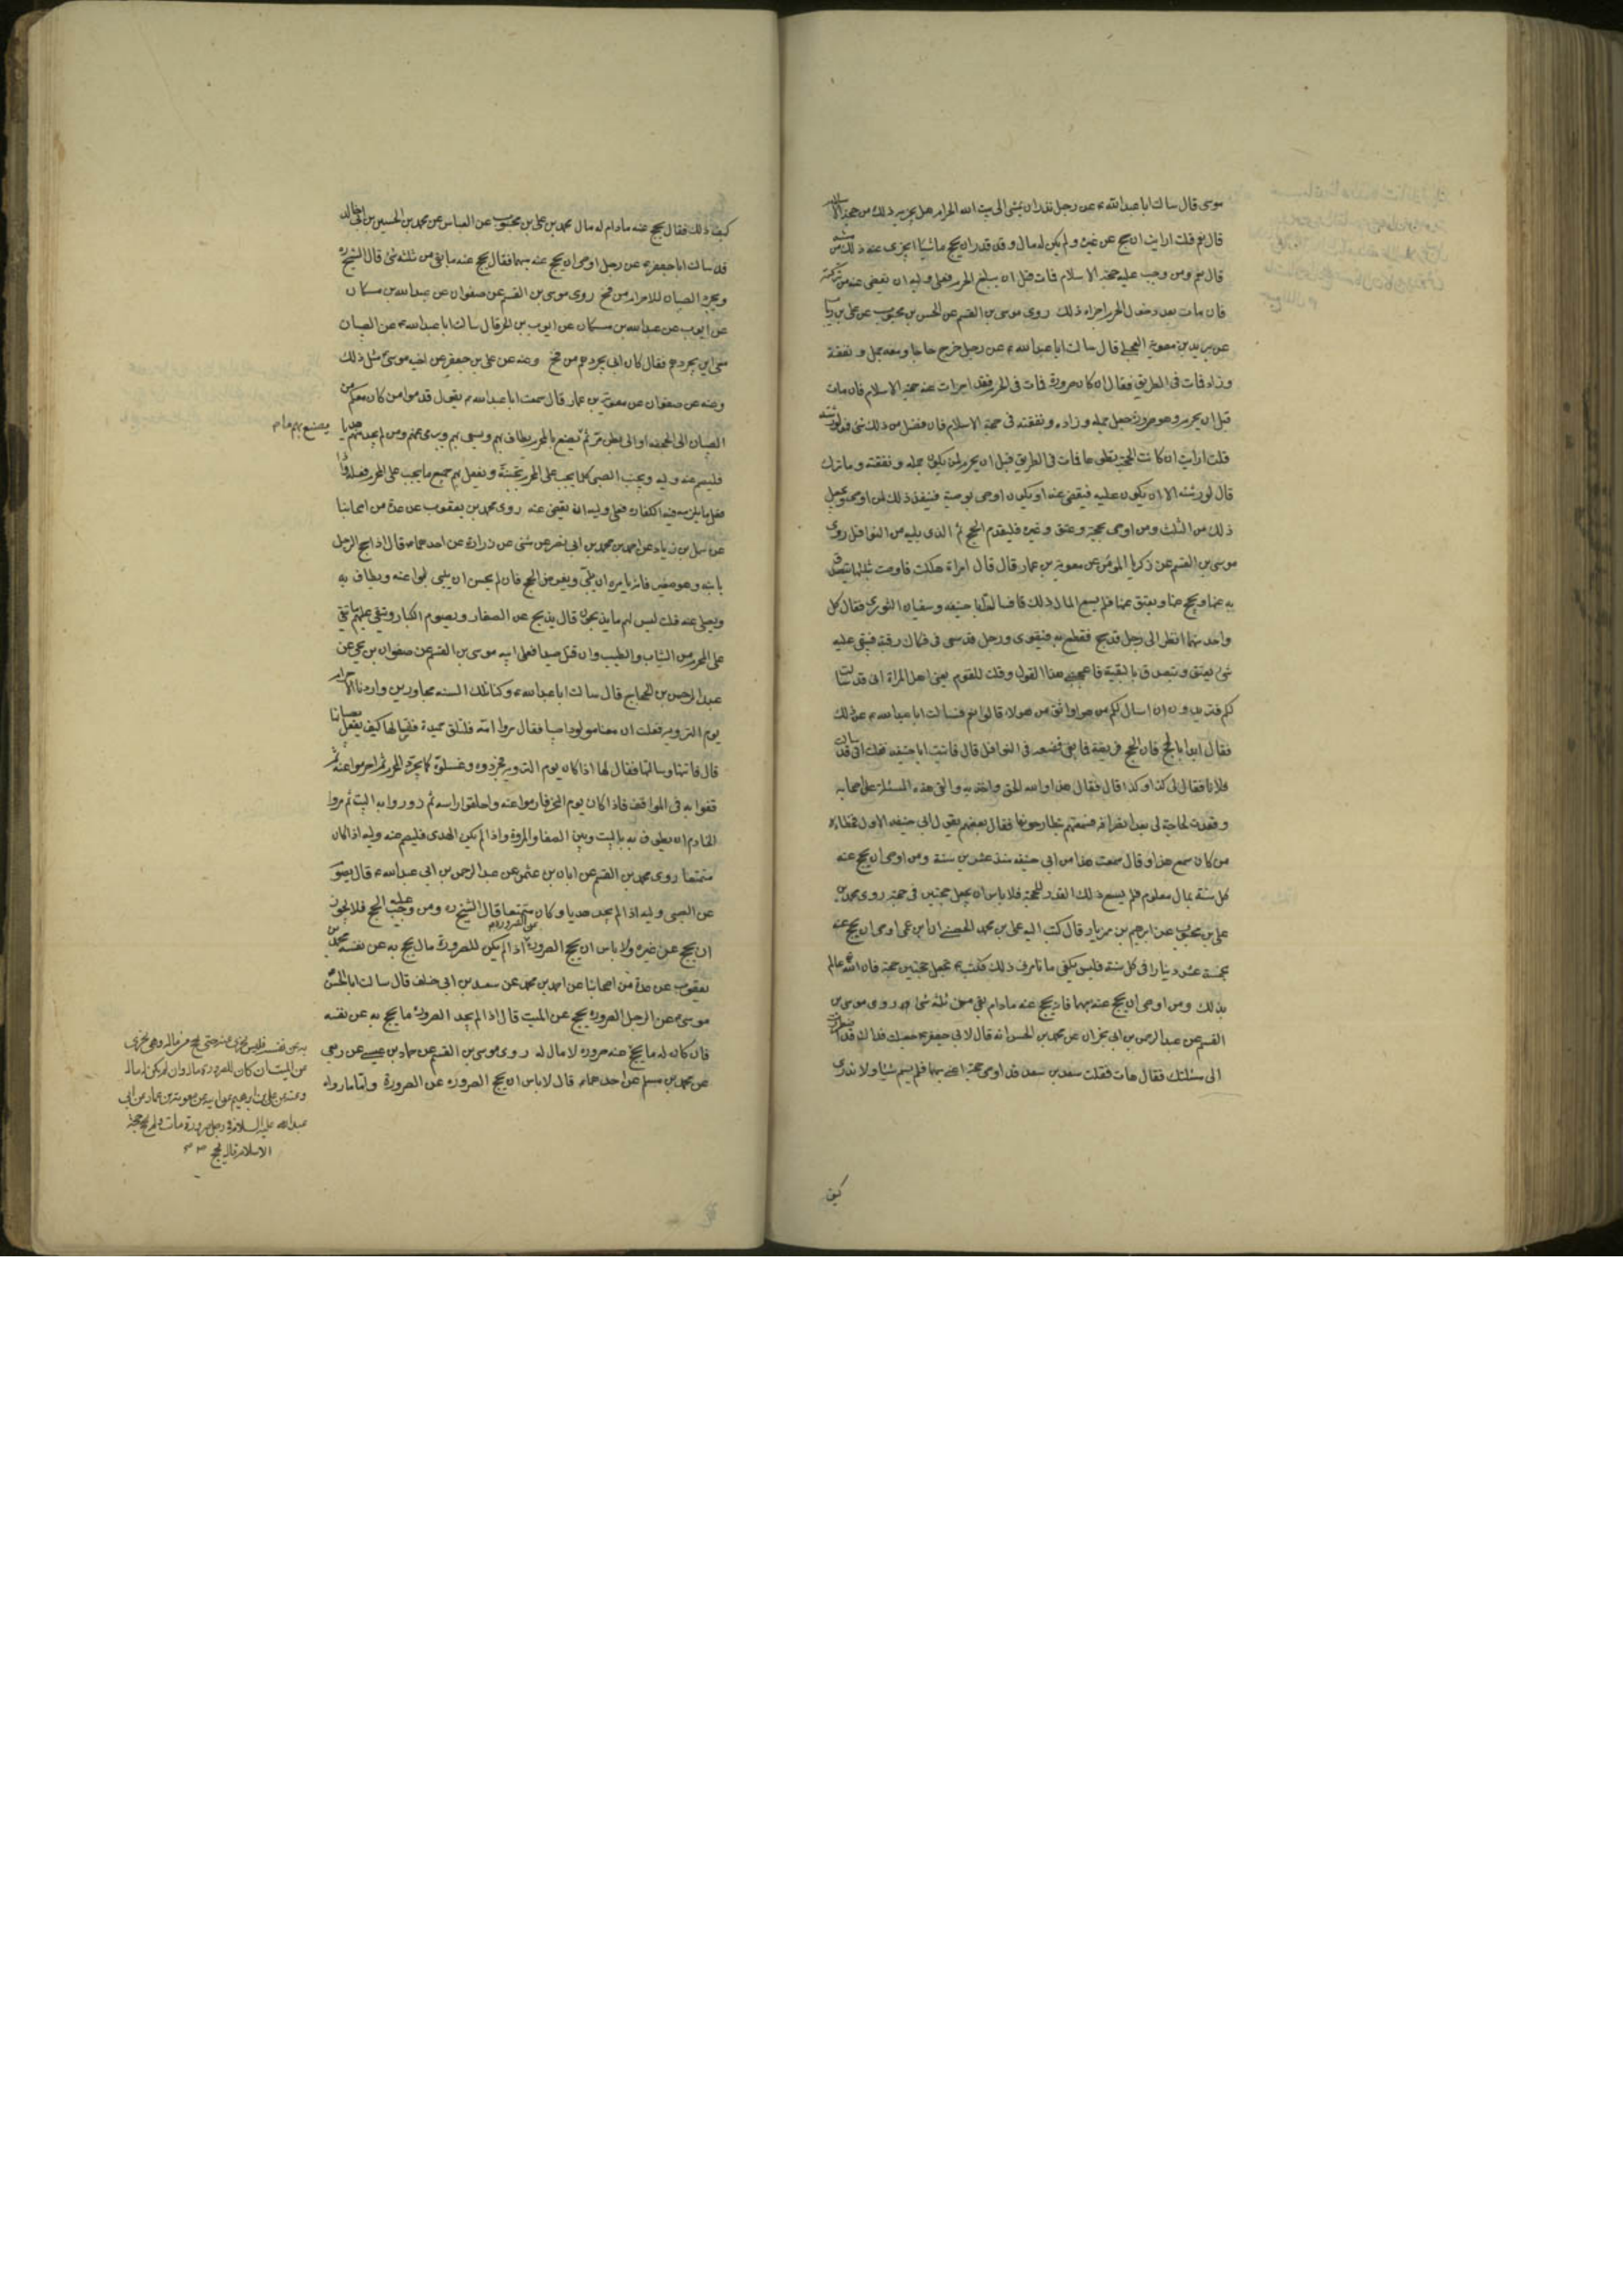 موسى قال سالت ابا عبد الله ع عن رجل نذر ان يمشى الى بيت الله الحرام هل يجزيه ذلك من حجة الاسلام
قال نعم قلت ارايت ان حج عن غيره ولم يكن له مال وقد نذر ان يحج ماشيا ايجزى عنه ذلك من مشيه
قال نعم ومن وجب عليه حجة الاسلام فمات قبل ان يبلغ الحرم فعلى وليه ان يقضى عنه من تركته
فان مات بعد دخول الحرم اجزاه ذلك روى موسى بن القسم عن الحسن بن محبوب عن على بن رياب
عن بريد بن معوية العجلى قال سالت ابا عبد الله ع عن رجل خرج حاجا ومعه جمل ونفقة
وزاد فمات فى الطريق فقال ان كان صرورة فمات فى الحرم فقد اجزات عنه حجة الاسلام فان مات
قبل ان يحرم وهو صرورة جعل جمله وزاده ونفقته فى حجة الاسلام فان فضل من ذلك شئ فهو لورثته
قلت ارايت ان كانت الحجة تطوعا فمات فى الطريق قبل ان يحرم لمن يكون جمله ونفقته وما ترك
قال لورثته الا ان يكون عليه فيقضى عنه او يكون اوصى بوصية فينفذ ذلك لمن اوصى ويجعل
ذلك من الثلث ومن اوصى بحجة وعتق وغيره فليقدم الحج ثم الذى يليه من النوافل روى
موسى بن القسم عن زكريا المؤمن عن معوية بن عمار قال قال امراة هلكت فاوصت بثلثها يتصدق
به عنها ويحج عنها ويعتق عنها فلم يسع المال ذلك فسالت ابا حنيفه وسفيان الثورى فقال كل
واحد منهما انظر الى رجل قد حج فقطع به فيقوى ورجل قد سعى فى فكاك رقبة فبقى عليه
شئ فيعتق ويتصدق بالبقية فاعجبنى هذا القول وقلت للقوم يعنى اهل المراة انى قد سالت
لكم فتريدون ان اسال لكم من هو اوثق من هولاء قالوا نعم فسالت ابا عبد الله ع عن ذلك
فقال ابدا بالحج فان الحج فريضة فما بقى فضعه فى النوافل قال فاتيت ابا حنيفه فقلت انى قد سالت
فلانا فقال لى كذا وكذا قال فقال هذا والله الحق واخذ به والقى هذه المسئلة على اصحابه
وقعدت لحاجة لى بعد انصرافه فسمعتهم يتطارحونها فقال بعضهم بقول ابى حنيفه الاول فخطاه
من كان سمع هذا وقال سمعت هذا من ابى حنيفه منذ عشرين سنة ومن اوصى ان يحج عنه
كل سنة بمال معلوم فلم يسع ذلك القدر للحجة فلا باس ان يجعل حجتين فى حجة روى محمد بن
على بن محبوب عن ابرهيم بن مهزيار قال كتب اليه على بن محمد الحصينى ان ابن عمى اوصى ان يحج عنه
بخمسة عشر دينارا فى كل سنة فليس يكفى ما تامرنى فى ذلك فكتب ع تجعل حجتين حجة فان الله عالم
بذلك ومن اوصى ان يحج عنه مبهما فانه يحج عنه مادام بقى من ثلثه شئ روى موسى بن
القسم عن عبد الرحمن بن ابى نجران عن محمد بن الحسن انه قال لابى جعفر ع جعلت فداك قد اضطررت
الى مسئلتك فقال هات فقلت سعد بن سعد قد اوصى حجوا عنى مبهما فلم يسم شيئا ولا ندرى
كيف
كيف ذلك فقال يحج عنه مادام له مال محمد بن على بن محبوب عن العباس عن محمد بن الحسين بن ابى خالد
قد سالت ابا جعفر ع عن رجل اوصى ان يحج عنه مبهما فقال يحج عنه ما بقى من ثلثه شئ قال الشيخ ره
ويجرد الصبيان للاحرام من فخ روى موسى بن القسم عن صفوان عن عبد الله بن مسكان
عن ايوب عن عبد الله بن مسكان عن ايوب بن الحر قال سالت ابا عبد الله ع عن الصبيان
متى اين يجردهم فقال كان ابى يجردهم من فخ وعنه عن على بن جعفر عن اخيه موسى ع مثل ذلك
وعنه عن صفوان عن معوية بن عمار قال سمعت ابا عبد الله ع يقول قدموا من كان معكم من
الصبيان الى الجحفة او الى بطن مر ثم يصنع بالمحرم يطاف بهم ويسعى بهم ويرمى عنهم ومن لم يجد منهم هديا
يصنع بهم ما
فليصم عنه وليه ويجنب الصبى كلما يجب على المحرم تجنبه ويفعل به جميع ما يجب على المحرم فعله واذا
فعل ما يلزمه فيه الكفارة فعلى وليه ان يقضى عنه روى محمد بن يعقوب عن عدة من اصحابنا
عن سهل بن زياد عن احمد بن محمد بن ابى نصر عن مثنى عن زرارة عن احدهما ع قال اذا حج الرجل
بابنه وهو صغير فانه يامره ان يلبى ويفرض الحج فان لم يحسن ان يلبى لبوا عنه ويطاف به
ويصلى عنه قلت ليس لهم ما يذبحون قال يذبح عن الصغار ويصوم الكبار ويتقى عليهم ما يتقى
على المحرم من الثياب والطيب وان قتل صيدا فعلى ابيه موسى بن القسم عن صفوان بن يحيى عن
عبد الرحمن بن الحجاج قال سالت ابا عبد الله ع وكنا تلك السنه مجاورين واردنا الاحرام
يوم الترويه فقلت ان معنا مولودا صبيا فقال مروا امه فلتلق حميدة فلتسالها كيف يفعل بصبيانها
قال فاتتها وسالتها فقالت لها اذا كان يوم الترويه فجردوه وغسلوه كما يجرد المحرم ثم احرموا عنه ثم
قفوا به فى المواقف فاذا كان يوم النحر فارموا عنه واحلقوا راسه ثم زوروا به البيت ثم مروا
الخادم ان يطوف به بالبيت وبين الصفا والمروة واذا لم يكن الهدى فليصم عنه وليه اذا كان
متمتعا روى محمد بن القسم عن ابان بن عثمن عن عبد الرحمن بن ابى عبد الله ع قال يصوم
عن الصبى وليه اذا لم يجد هديا وكان متمتعا قال الشيخ ره ومن وجب عليه الحج فلا يجوز
ان يحج عن غيره ولا باس ان يحج الصرورة عن الصرورة اذا لم يكن للصرورة مال يحج به عن نفسه محمد بن
يعقوب عن عدة من اصحابنا عن احمد بن محمد عن سعد بن ابى خلف قال سالت ابا الحسن
موسى ع عن الرجل الصرورة يحج عن الميت قال اذا لم يجد الصرورة ما يحج به عن نفسه
فان كان له ما يحج عنه صروره لا مال له روى موسى بن القسم عن حماد بن عيسى عن ربعى
عن محمد بن مسلم عن احدهما ع قال لا باس ان يحج الصروره عن الصرورة واما ما رواه
به عن نفسه فليس يجزى عنه حتى يحج من ماله وهى تجزى
عن الميت ان كان للصرورة مال وان لم يكن له مال
وعنه عن على بن ابرهيم عن ابيه عن معوية بن عمار عن ابى
عبد الله عليه السلام فى رجل صرورة مات ولم يحج حجة
الاسلام قال يحج